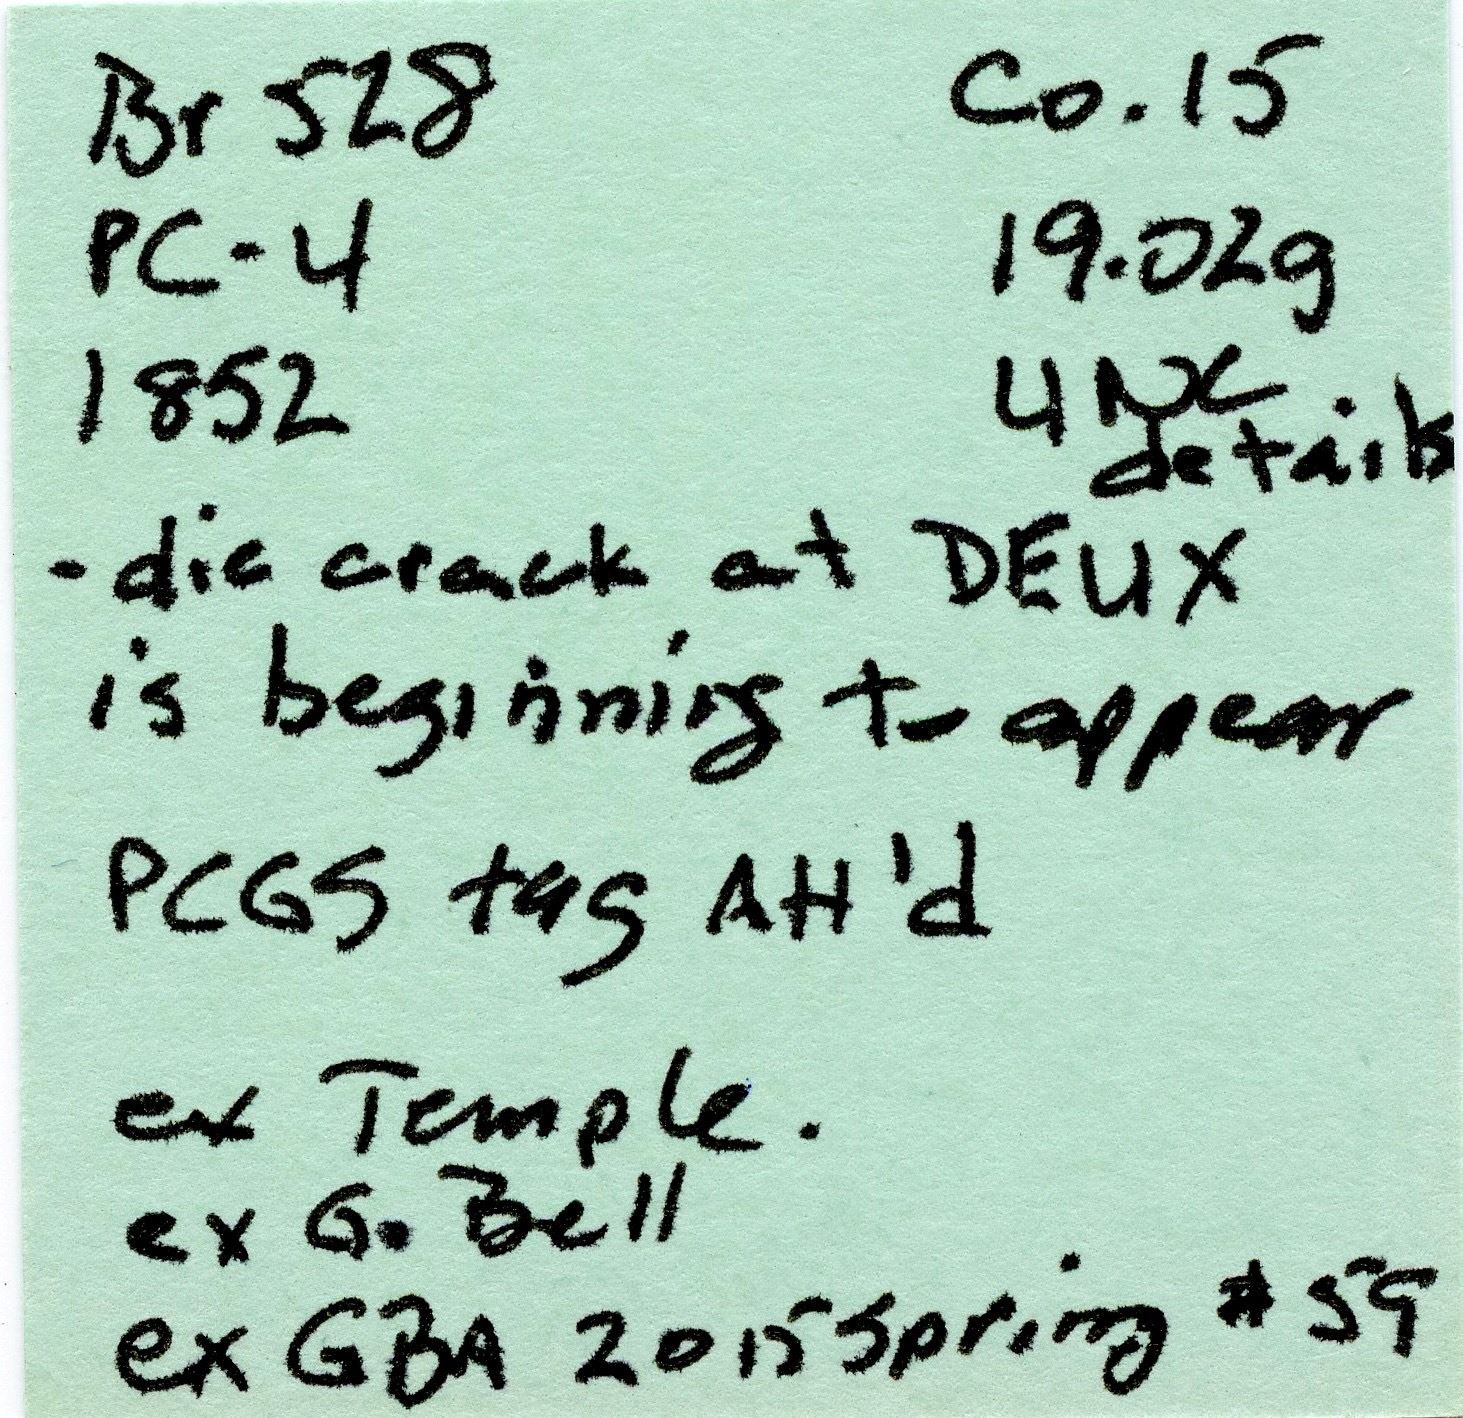 Br 528 Co. 15
PC-4 19.02g
1852 UNC
details
- die crack at DEUX
is beginning to appear
PCGS tag AH'd
ex Temple.
ex G. Bell
ex GBA 2015 Spring # 59